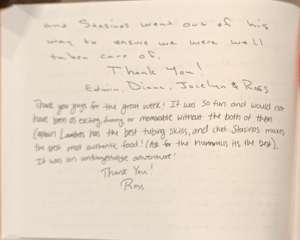 and Stasinos went out of his
way to ensure we were well
taken care of.
Thank You!
Edwin, Diane, Jocelyn & Ross
Thank you guys for the great week! It was so fun and would not
have been as exciting, funny or memorable without the both of them
Captain Lambros has the best tubing skills, and chef Stasinos makes
the best most authentic food! (Ask for the hummus its the best).
It was an unforgettable adventure!
Thank You!
Ross